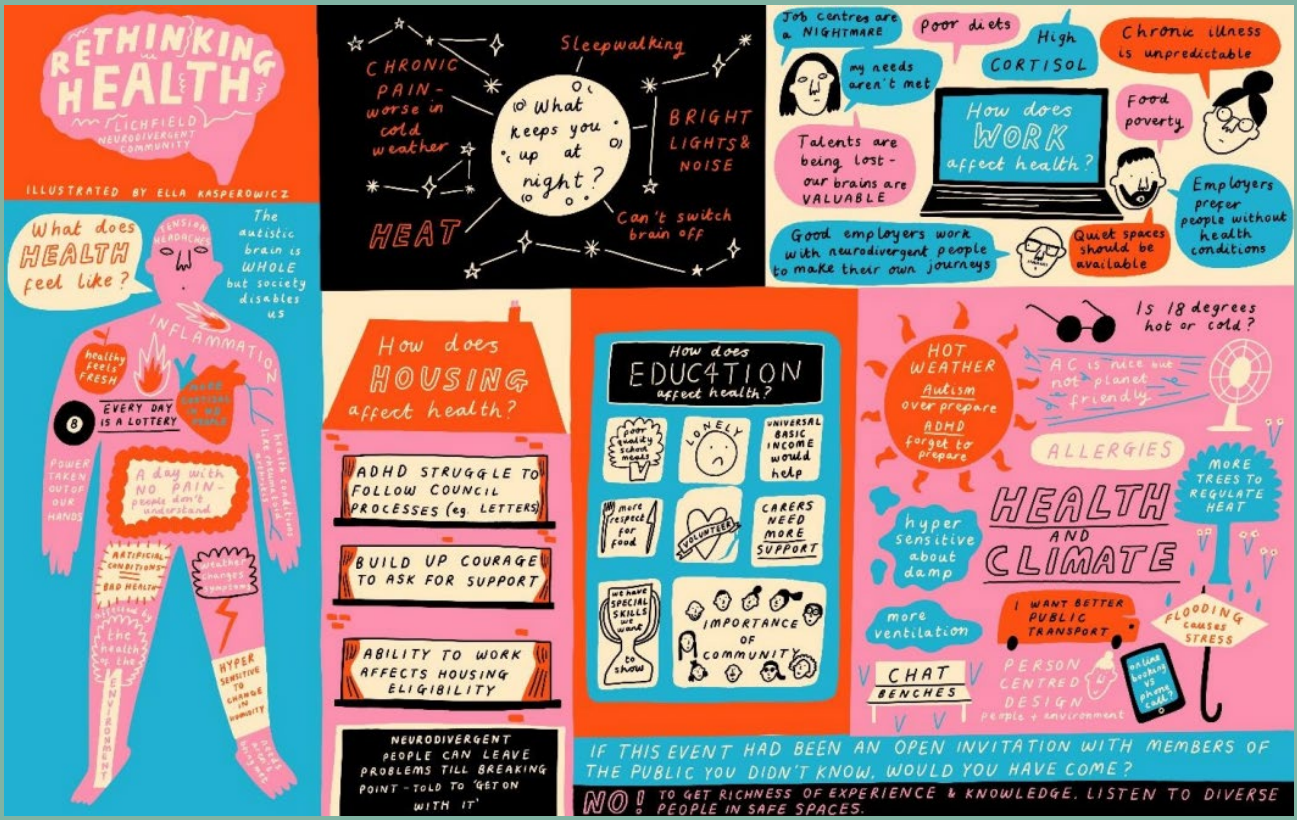 RETHINKING
HEALTH
LICHFIELD
NEURODIVERGENT
COMMUNITY
ILLUSTRATED BY ELLA KASPEROWICZ
What does
HEALTH
feel like?
The
autistic
brain is
WHOLE
but society
disables
us
TENSION
HEADACHES
INFLAMMATION
healthy
feels
FRESH
MORE
CORTISOL
IN ND
PEOPLE
8
EVERY DAY
IS A LOTTERY
POWER
TAKEN
OUT OF
OUR
HANDS
health conditions
like rheumatoid
arthritis
A day with
NO PAIN-
people don't
understand
ARTIFICIAL
CONDITIONS
=
BAD HEALTH
weather
changes
symptoms
affected by
the
health
of the
ENVIRONMENT
HYPER
SENSITIVE
TO
CHANGE
IN
HUMIDITY
needs
aren't
CHRONIC
PAIN-
worse in
cold
weather
Sleepwalking
What
keeps you
up at
night?
BRIGHT
LIGHTS &
NOISE
HEAT
Can't switch
brain off
Job centres are
a NIGHTMARE
Poor diets
High
CORTISOL
Chronic illness
is unpredictable
my needs
aren't met
How does
WORK
affect health?
Food
poverty
Talents are
being lost-
our brains are
VALUABLE
Employers
prefer
people without
health
conditions
Good employers work
with neurodivergent people
to make their own journeys
Quiet spaces
should be
available
How does
HOUSING
affect health?
ADHD STRUGGLE TO
FOLLOW COUNCIL
PROCESSES (eg. LETTERS)
BUILD UP COURAGE
TO ASK FOR SUPPORT
ABILITY TO WORK
AFFECTS HOUSING
ELIGIBILITY
NEURODIVERGENT
PEOPLE CAN LEAVE
PROBLEMS TILL BREAKING
POINT - TOLD TO 'GET ON
WITH IT'
How does
EDUC4TION
affect health?
poor
quality
school
meals
LONELY
UNIVERSAL
BASIC
INCOME
would
help
more
respect
for
food
VOLUNTEER
CARERS
NEED
MORE
SUPPORT
we have
SPECIAL
SKILLS
we
want
to
show
IMPORTANCE
OF
COMMUNITY
Is 18 degrees
hot or cold?
HOT
WEATHER
Autism
over prepare
ADHD
forget to
prepare
AC is nice but
not planet
friendly
ALLERGIES
MORE
TREES TO
REGULATE
HEAT
HEALTH
AND
CLIMATE
hyper
sensitive
about
damp
more
ventilation
I WANT BETTER
PUBLIC
TRANSPORT
FLOODING
causes
STRESS
CHAT
BENCHES
PERSON
CENTRED
DESIGN
people + environment
online
booking
vs
phone
call?
IF THIS EVENT HAD BEEN AN OPEN INVITATION WITH MEMBERS OF
THE PUBLIC YOU DIDN'T KNOW, WOULD YOU HAVE COME?
NO! TO GET RICHNESS OF EXPERIENCE & KNOWLEDGE, LISTEN TO DIVERSE
PEOPLE IN SAFE SPACES.